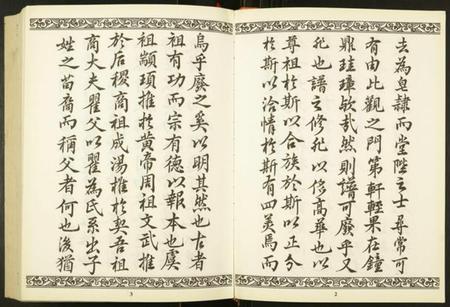 去為皂隸而堂陛之士尋常可
有由此觀之門第軒輊果在鐘
鼎珪璋歟哉然則譜可廢乎又
非也譜之修非以侈高華也以
尊祖於斯以合族於斯以正分
於斯以洽情於斯有四美焉而
2
烏乎廢之奚以明其然也古者
祖有功而宗有德以報本也虞
祖顓頊推於黄帝周祖文武推
於后稷商祖成湯推於契吾祖
商大夫瞿父以瞿為氏系出子
姓之苗裔而稱父者何也後猶
3